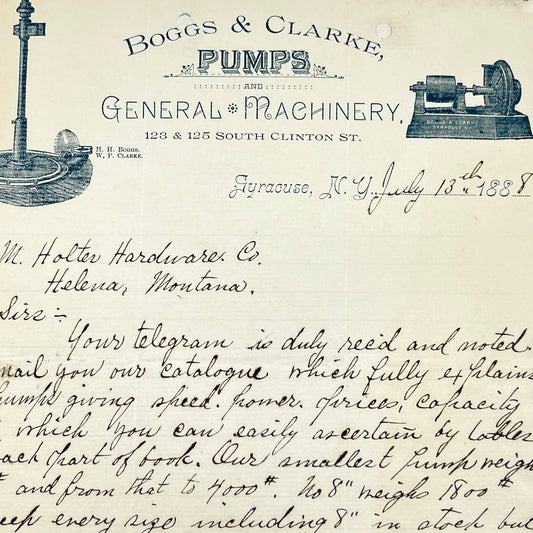 BOGGS & CLARKE,
PUMPS
AND
GENERAL MACHINERY,
123 & 125 SOUTH CLINTON ST.
H. H. BOGGS.
W. P. CLARKE.
Syracuse, N. Y., July 13th 1888
M. Holter Hardware. Co.
Helena, Montana.
Sirs :-
Your telegram is duly recd and noted.
mail you our catalogue which fully explains
pumps giving speed. power. prices, capacity
which you can easily ascertain by tables
each part of book. Our smallest pump weigh
# and from that to 4000#. No 8" weighs 1800#
eep every size including 8" in stock but